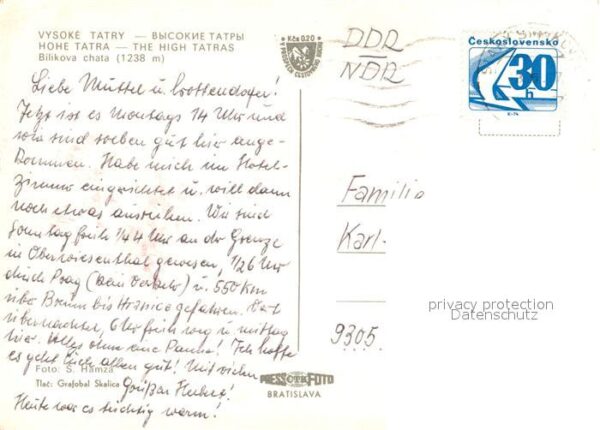 VYSOKÉ TATRY — ВЫСОКИЕ ТАТРЫ
HOHE TATRA — THE HIGH TATRAS
Bilíkova chata (1238 m)
Kčs 0,20
DDR
NDR
Československo
30
h
Liebe Muttel u.
Jetzt ist es Montags 14 Uhr und
wir sind soeben gut hier ange-
kommen. Habe mich im Hotel-
zimmer eingerichtet u. will dann
noch etwas ausruhen. Wir sind
Sonntag früh 1/4 4 Uhr an der Grenze
in Oberwiesenthal gewesen, 1/2 6 Uhr
durch Prag (kein Verkehr) u. 550 km
über Brünn bis Hranice gefahren. Dort
übernachtet, 6 Uhr früh los u. mittag
hier. Alles ohne eine Panne! Ich hoffe
es geht Euch allen gut! Mit vielen
Grüßen
Heute war es tüchtig warm!
Foto: S. Hamza
Tlač: Grafobal Skalica
PRESSFOTO
ČTK
BRATISLAVA
Familie
Karl-
9305
privacy protection
Datenschutz